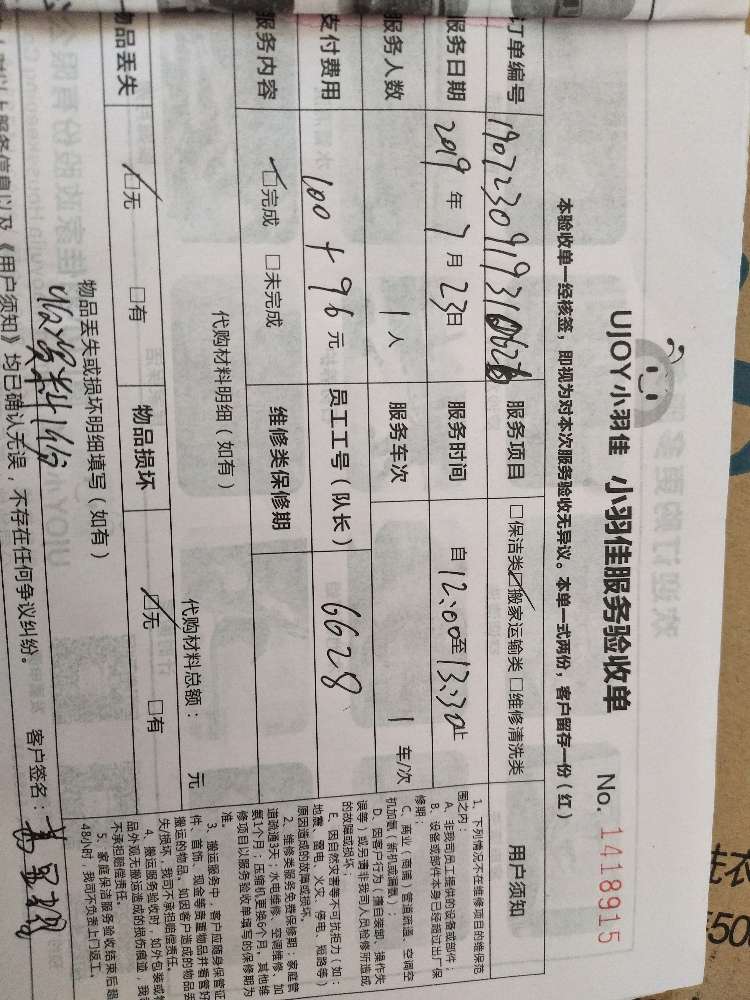 UJOY小羽佳 小羽佳服务验收单 No. 1418915
本验收单一经核签，即视为对本次服务验收无异议。本单一式两份，客户留存一份（红）
订单编号 服务项目 □保洁类 ☑搬家运输类 □维修清洗类 用户须知
服务日期 2019 年 7 月 23 日 服务时间 自 12:00 至 13:30 止
服务人数 1 人 服务车次 1 车/次
支付费用 100+96 元 员工工号（队长） 6628
服务内容 ☑完成 □未完成 维修类保修期
代购材料明细（如有） 代购材料总额： 元
物品丢失 ☑无 □有 物品损坏 ☑无 □有
物品丢失或损坏明细填写（如有）
服务信息以及《用户须知》均已确认无误，不存在任何争议纠纷。 客户签名：
1、下列情况不在维修项目的维保范
围之内：
A、非我司员工提供的设备或部件；
B、设备或部件本身已经超过出厂保
修期；
C、商业（商铺）管道疏通、空调空
机加氨（新机或漏氨）；
D、因客户行为（擅自装卸、操作失
误等）或另请非我司人员检修所造成
的故障或损坏；
E、因自然灾害等不可抗拒力（如：
地震、雷电、火灾、停电、短路等）
原因造成的故障或损坏。
2、维修类服务免费保修期：家庭管
道疏通3天；水电维修、空调维修、加
氨1个月；压缩机更换6个月，其他维
修项目以服务验收单填写的保修期为
准
3、搬运服务中，客户应随身保管证
件、首饰、现金等贵重物品并看管好
搬运的物品，如因客户造成的物品丢
失/损坏，我司不承担赔偿责任。
4、搬运服务验收时，如外包装或物
品外观无搬运造成的损伤痕迹，我司
不承担赔偿责任。
5、家庭保洁服务验收结束后超
48小时，我司不负责上门返工。
洗衣